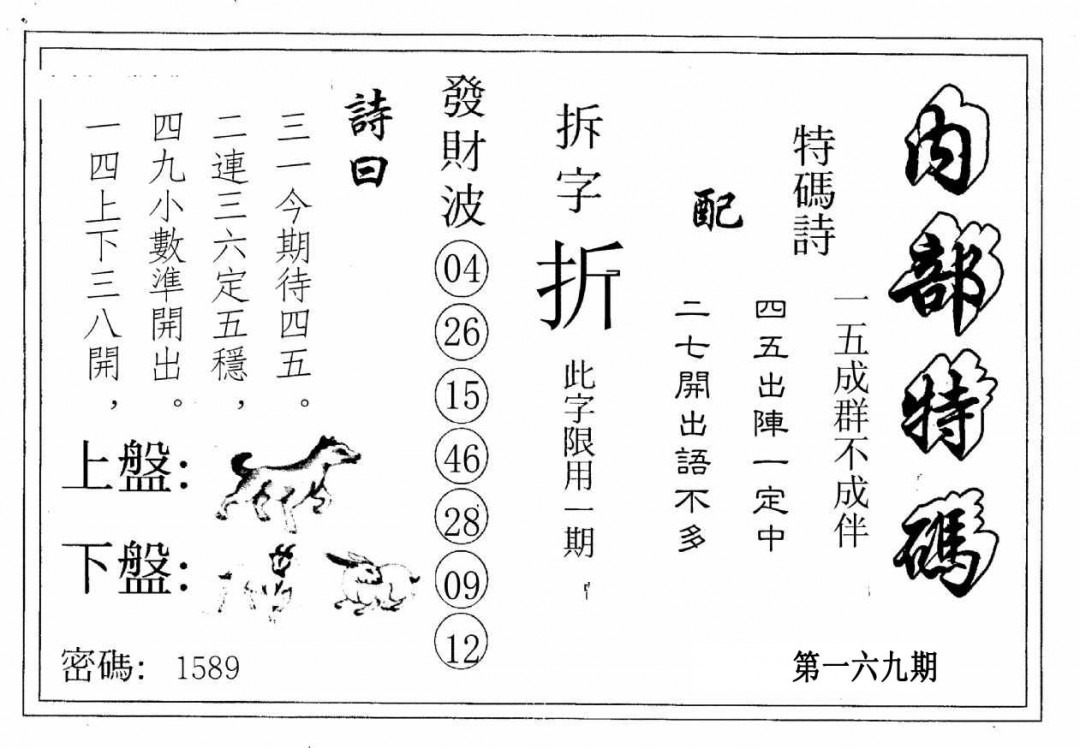 內部特碼
第一六九期
特碼詩
一五成群不成伴
四五出陣一定中
配
二七開出語不多
拆字
折
此字限用一期
發財波
04
26
15
46
28
09
12
詩曰
三一今期待四五。
二連三六定五穩，
四九小數準開出。
一四上下三八開，
上盤：
下盤：
密碼： 1589